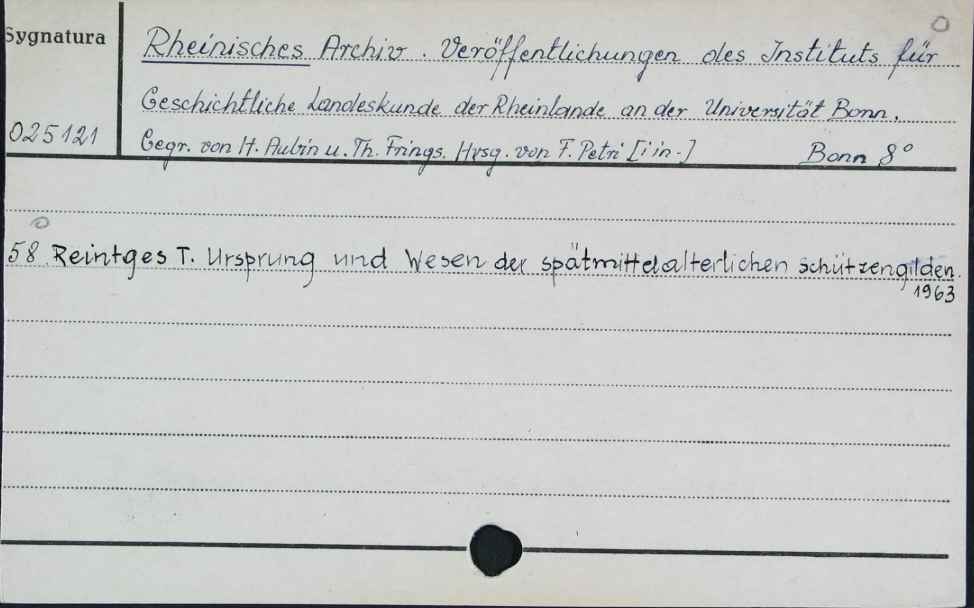 Sygnatura
025121
Rheinisches Archiv. Veröffentlichungen des Instituts für
Geschichtliche Landeskunde der Rheinlande an der Universität Bonn.
Gegr. von H. Aubin u. Th. Frings. Hrsg. von F. Petri [i in.] Bonn 8°
58 Reintges T. Ursprung und Wesen der spätmittelalterlichen Schützengilden.
1963